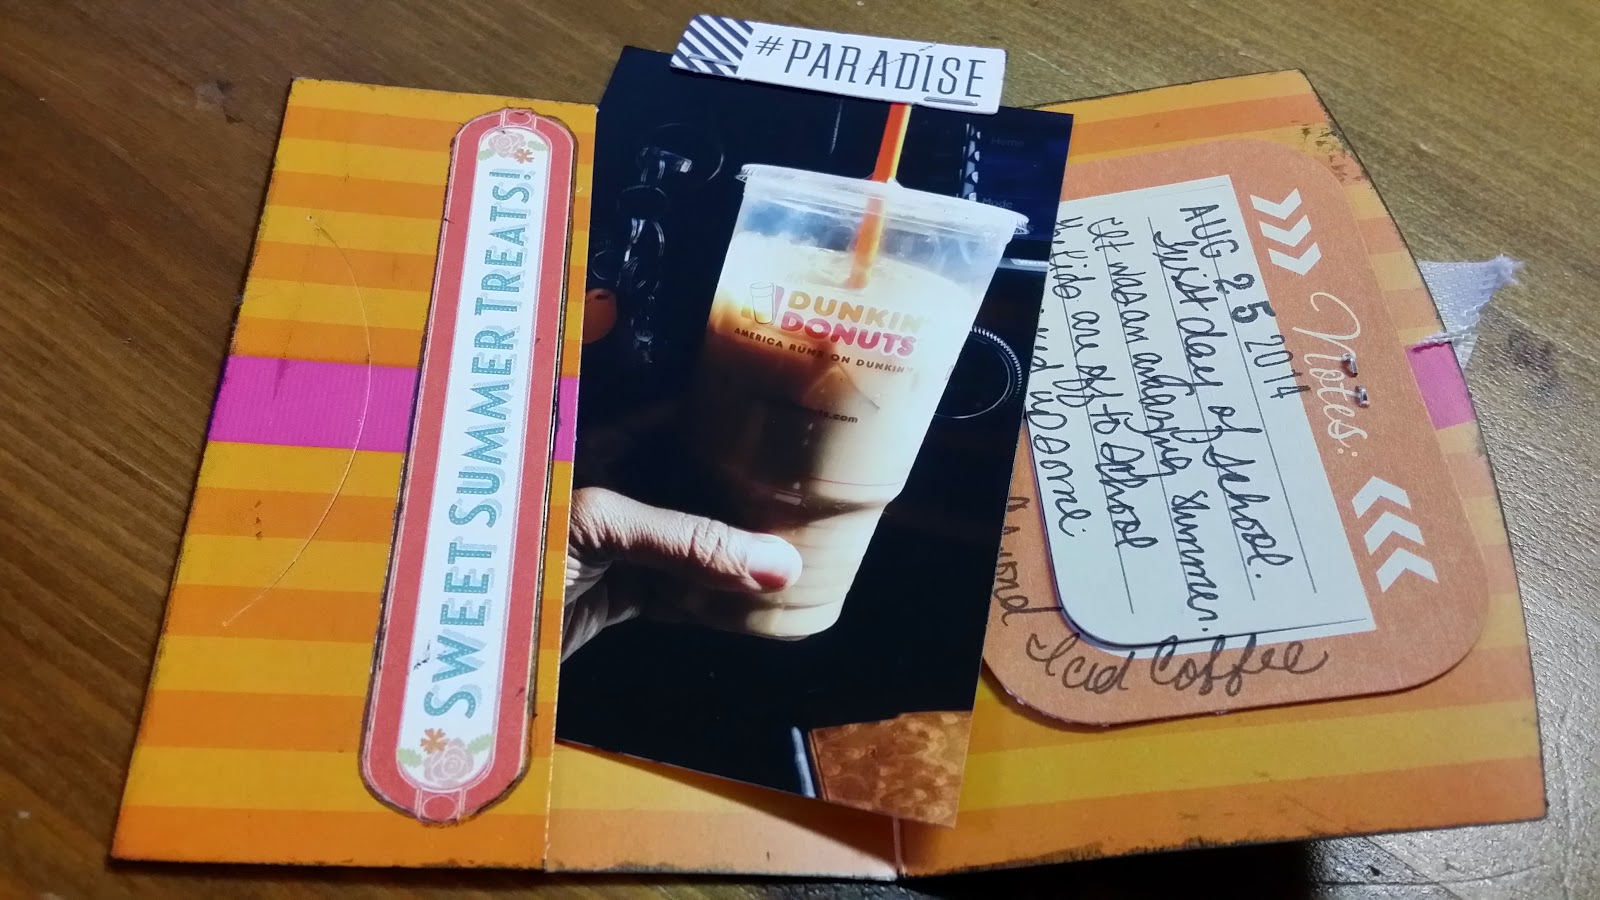 #PARADISE
SWEET SUMMER TREATS!
Home
Mode
DUNKIN'
DONUTS
AMERICA RUNS ON DUNKIN'
.com
Notes:
AUG 25 2014
First day of school.
It was an amazing summer.
kids are off to school
up some
Almond Iced Coffee